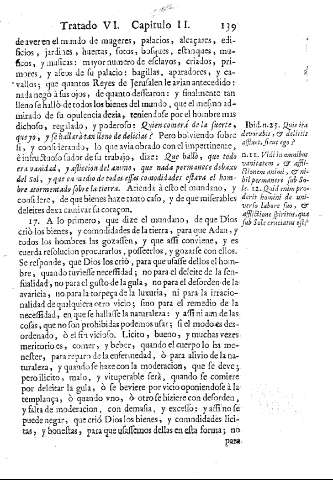 Tratado VI. Capitulo II. 139
de aver en el mundo de mugeres, palacios, alcaçares, edi-
ficios, jardines, huertas, sotos, bosques, estanques, mu-
sicos, y musicas: mayor numero de esclavos, criados, pri-
mores, y aseos de su palacio: bagillas, aparadores, y ca-
vallos; que quantos Reyes de Jerusalen le avian antecedido:
nada negò à sus ojos, de quanto dessearon: y finalmente tan
lleno se hallò de todos los bienes del mundo, que el mesmo ad-
mirado de su opulencia dezia, teniendose por el hombre mas
dichoso, regalado, y poderoso: Quien comerà de la suerte,
que yo, y se hallarà tan lleno de delicias? Pero bolviendo sobre
si, y considerando, lo que avia obrado con el impertinente,
è infructuoso sudor de su trabajo, dize: Que hallò, que todo
era vanidad, y afliccion del animo, que nada permanece debaxo
del Sol, y que en medio de todas essas comodidades estava el hom-
bre atormentado sobre la tierra. Atienda à esto el mundano, y
considere, de que bienes haze tanto caso, y de que miserables
deleites dexa cautivar su coraçon.
17. A lo primero, que dize el mundano, de que Dios
criò los bienes, y commodidades de la tierra, para que Adan, y
todos los hombres las gozassen, y que assi conviene, y es
cuerda resolucion procurarlos, posseerlos, y gozarse con ellos.
Se responde, que Dios los criò, para que usasse dellos el hom-
bre, quando tuviesse necessidad; no para el deleite de la sen-
sualidad, no para el gusto de la gula, no para el desorden de la
avaricia, no para la torpeça de la luxuria, ni para la irracio-
nalidad de qualquiera otro vicio; sino para el remedio de la
necessidad, en que se hallasse la naturaleza: y assi ni aun de las
cosas, que no son prohibidas podemos usar; si el modo es des-
ordenado, ò el fin vicioso. Licito, bueno, y muchas vezes
meritorio es, comer, y beber, quando el cuerpo lo ha me-
nester, para reparo de la enfermedad, ò para alivio de la na-
turaleza, y quando se haze con la moderacion, que se deve;
pero ilicito, malo, y vituperable serà, quando se comiere
por deleitar la gula, ò se beviere por vicio oponiendose à la
templança, ò quando vno, ò otro se hiziere con desorden,
y falta de moderacion, con demasia, y excesso: y assi no se
puede negar, que criò Dios los bienes, y comodidades lici-
tas, y honestas, para que usassemos dellas en esta forma; no
para
Ibid. n. 25. Quis ita
devorabit, & deliciis
affluet, sicut ego?
n. 11. Vidi in omnibus
vanitatem, & affli-
ctionem animi, & ni-
hil permanere sub So-
le. 22. Quid enim pro-
derit homini de uni-
verso labore suo, &
afflictione spiritus, qua
sub Sole cruciatus est?